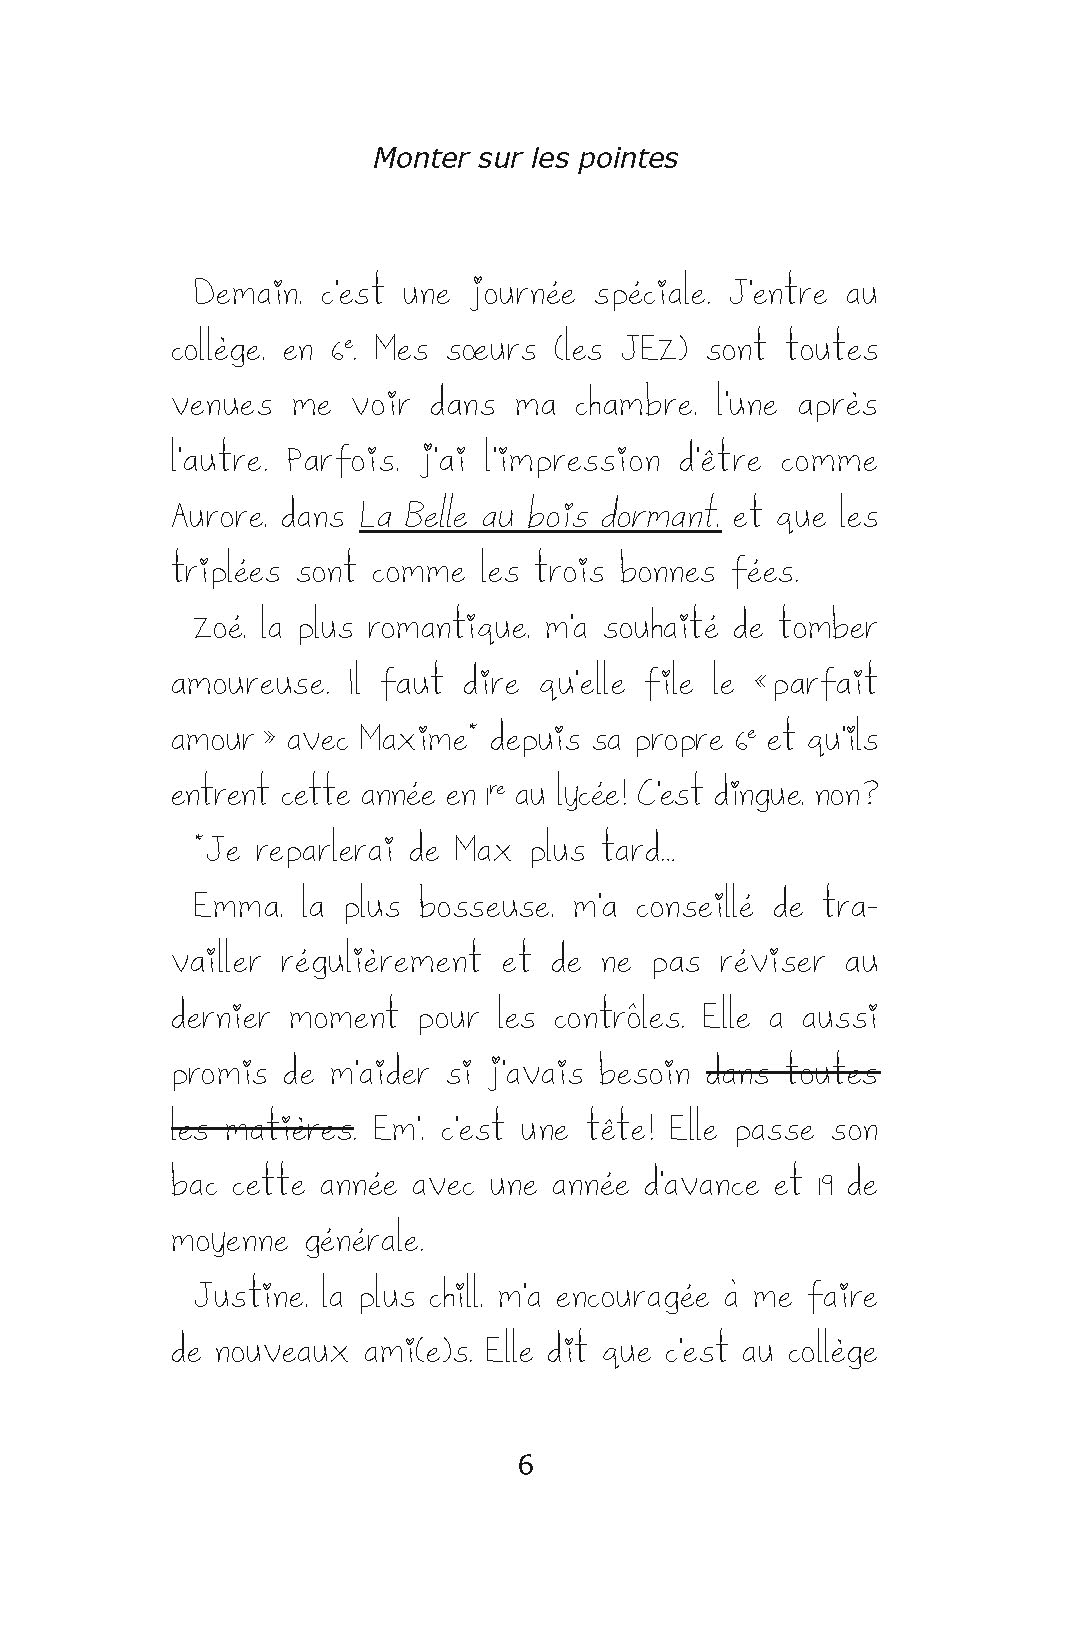 Monter sur les pointes
Demain, c'est une journée spéciale. J'entre au
collège, en 6e. Mes sœurs (les JEZ) sont toutes
venues me voir dans ma chambre, l'une après
l'autre. Parfois, j'ai l'impression d'être comme
Aurore, dans La Belle au bois dormant, et que les
triplées sont comme les trois bonnes fées.
Zoé, la plus romantique, m'a souhaité de tomber
amoureuse. Il faut dire qu'elle file le « parfait
amour » avec Maxime* depuis sa propre 6e et qu'ils
entrent cette année en 1re au lycée! C'est dingue, non?
*Je reparlerai de Max plus tard...
Emma, la plus bosseuse, m'a conseillé de tra-
vailler régulièrement et de ne pas réviser au
dernier moment pour les contrôles. Elle a aussi
promis de m'aider si j'avais besoin dans toutes
les matières. Em', c'est une tête! Elle passe son
bac cette année avec une année d'avance et 19 de
moyenne générale.
Justine, la plus chill, m'a encouragée à me faire
de nouveaux ami(e)s. Elle dit que c'est au collège
6